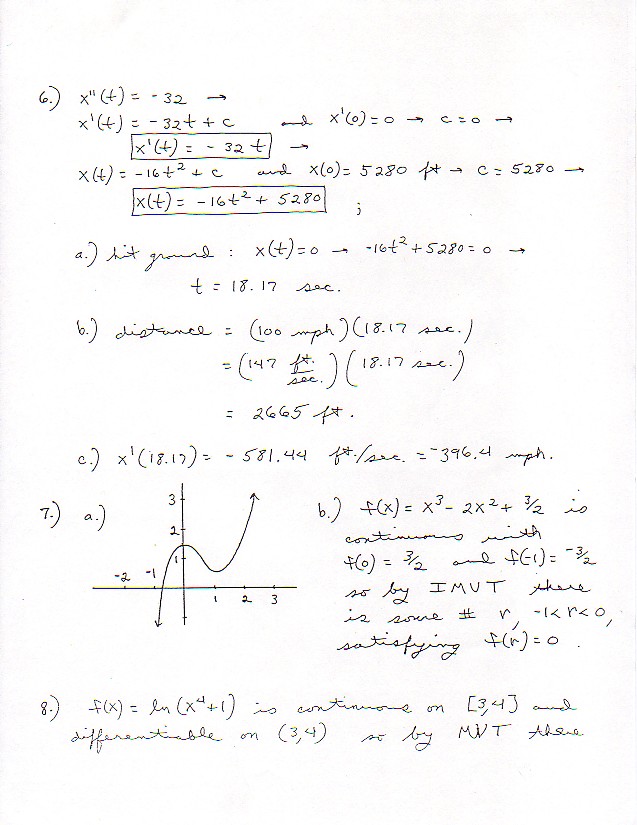 6.) x"(t) = -32 →
x'(t) = -32t + c and x'(0) = 0 → c = 0 →
x'(t) = -32t →
x(t) = -16t² + c and x(0) = 5280 ft → c = 5280 →
x(t) = -16t² + 5280 ;
a.) hit ground : x(t) = 0 → -16t² + 5280 = 0 →
t = 18.17 sec.
b.) distance = (100 mph)(18.17 sec.)
= (147 ft./sec.)(18.17 sec.)
= 2665 ft.
c.) x'(18.17) = -581.44 ft./sec. = -396.4 mph.
7.) a.)
3
2
1
-2 -1
1 2 3
b.) f(x) = x³ - 2x² + 3/2 is
continuous with
f(0) = 3/2 and f(-1) = -3/2
so by IMVT there
is some # r, -1<r<0,
satisfying f(r) = 0 .
8.) f(x) = ln (x⁴+1) is continuous on [3,4] and
differentiable on (3,4) so by MVT there